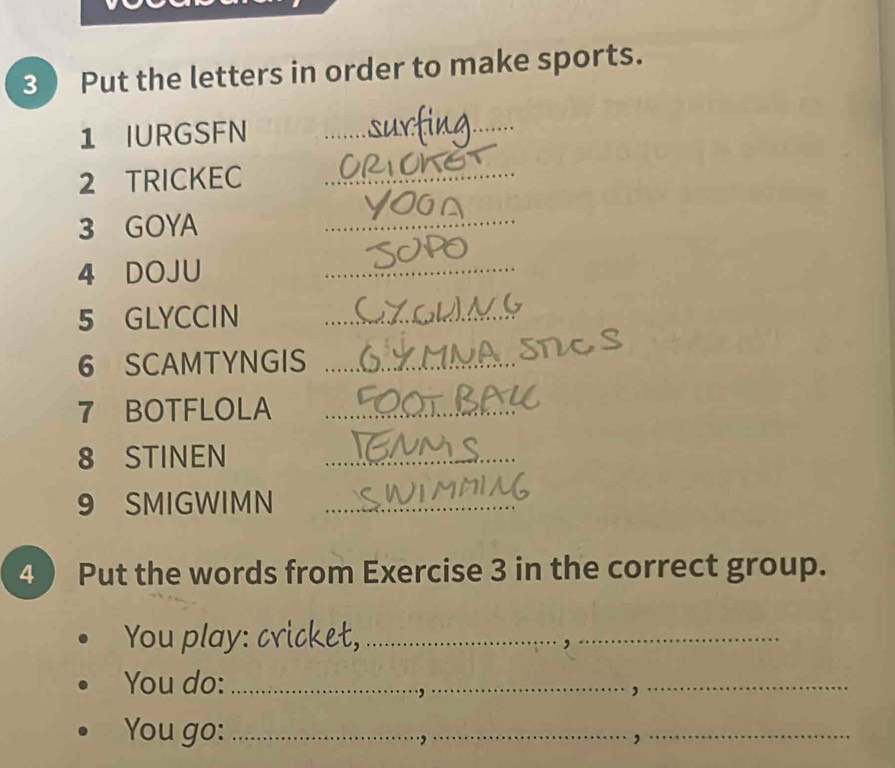 3 Put the letters in order to make sports.
1 IURGSFN surfing
2 TRICKEC CRICKET
3 GOYA YOGA
4 DOJU JUDO
5 GLYCCIN CYCLING
6 SCAMTYNGIS GYMNASTICS
7 BOTFLOLA FOOTBALL
8 STINEN TENNIS
9 SMIGWIMN SWIMMING
4 Put the words from Exercise 3 in the correct group.
• You play: cricket, ,
• You do: , ,
• You go: , ,